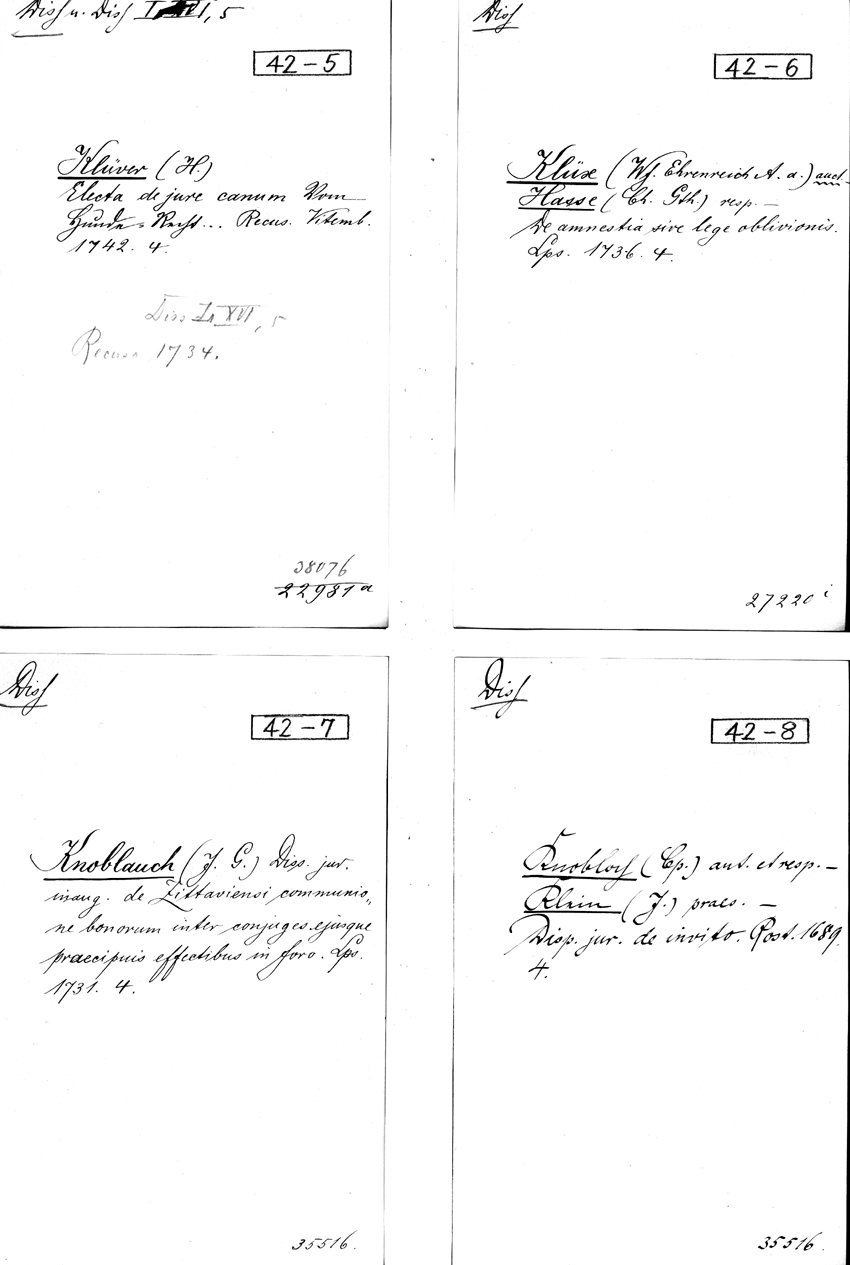 Diss u. Diss I, XVI, 5
42-5
Klüver (H.)
Electa de jure canum Vom
Hunde-Recht... Recus. Vitemb.
1742. 4.
Diss I, XVI, 5
Recusa 1734.
38076
22981a
Diss
42-6
Klüx (Wf. Ehrenreich A. a.) auct.
Hasse (Ch. Gth.) resp. —
De amnestia sive lege oblivionis.
Lps. 1736. 4.
27220 i
Diss
42-7
Knoblauch (J. G.) Diss. jur.
inaug. de Zittaviensi communio„
ne bonorum inter conjuges ejusque
praecipuis effectibus in foro. Lps.
1731. 4.
35516.
Diss
42-8
Knobloch (Cp.) aut. et resp. —
Klein (J.) praes. —
Disp. jur. de invito. Rost. 1689.
4.
35516.